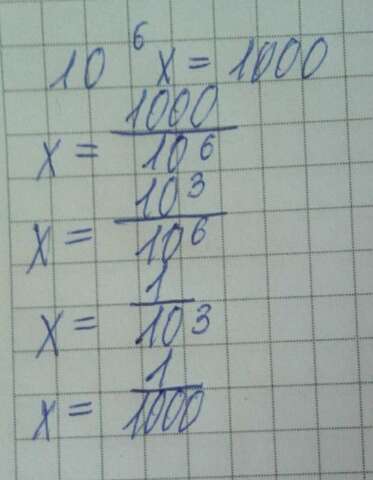 10⁶x = 1000
x = 1000/10⁶
x = 10³/10⁶
x = 1/10³
x = 1/1000